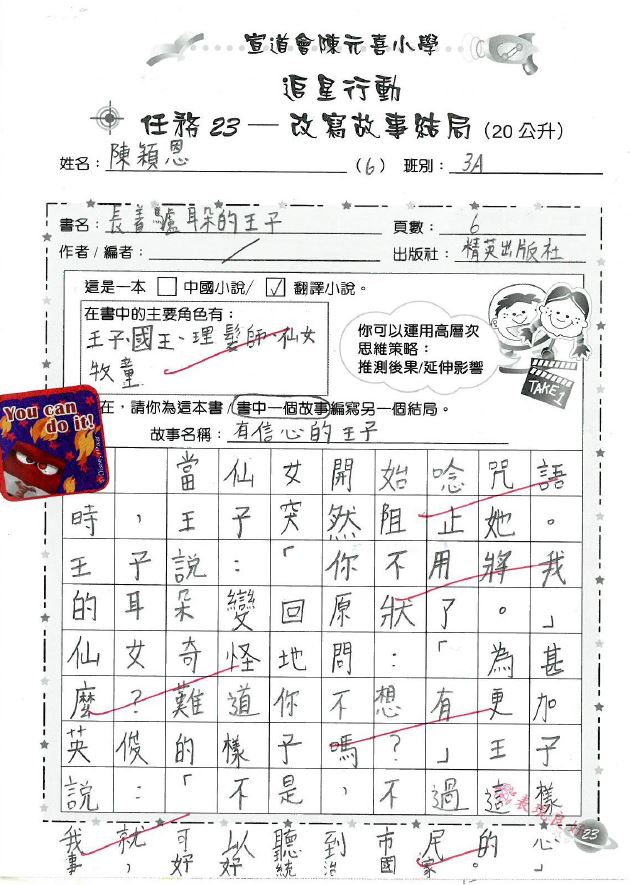 宣道會陳元喜小學
追星行動
任務 23 — 改寫故事結局 (20 公升)
姓名：陳穎恩 (6) 班別：3A
書名：長着驢耳朵的王子 頁數：6
作者 / 編者： 出版社：精英出版社
這是一本 □ 中國小說/ ☑ 翻譯小說。
在書中的主要角色有：
王子、國王、理髮師、仙女
牧童
你可以運用高層次
思維策略：
推測後果/延伸影響
TAKE 1
You can
do it!
在，請你為這本書/書中一個故事編寫另一個結局。
故事名稱：有信心的王子
當仙女開始唸咒語
時，王子突然阻止她。
王子說：「你不用將我
的耳朵變回原狀了。」
仙女奇怪地問：「為甚
麼？難道你不想有更加
英俊的樣子嗎？」王子
說：「不是，不過這樣
表現良好
23
我就可以聽到市民的心
事，好好統治國家。」